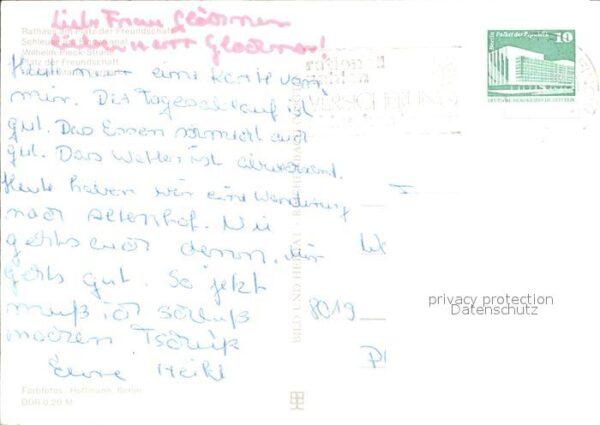 Liebe Frau Glöckner
Lieber Herr Glöckner!
Rathaus am Platz der Freundschaft
Wilhelm-Pieck-Straße
Platz der Freundschaft
Heute nur eine Karte von
mir. Der Tagesablauf ist
gut. Das Essen schmeckt auch
gut. Das Wetter ist
Heute haben wir eine Wanderung
nach Altenhof. Wie
gehts euch denn. Mir
gehts gut. So jetzt
muß ich schluß
machen Tschüß
Eure Heike
Farbfotos: Hoffmann, Berlin
DDR 0,20 M
BILD UND HEIMAT · REICHENBACH
VERSICHERUNG
Berlin, Palast der Republik
10
DEUTSCHE DEMOKRATISCHE REPUBLIK
8019
privacy protection
Datenschutz